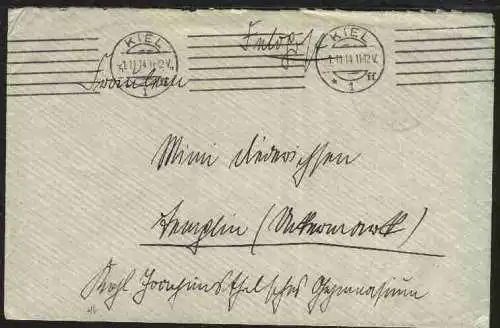 KIEL
1.11.14 11-12 V.
1
Feldpost
KIEL
1.11.14 11-12 V.
* 1 ff
Fräulein
Mimi Diederichsen
Templin (Uckermark)
Kgl. Joachimsthalsches Gymnasium